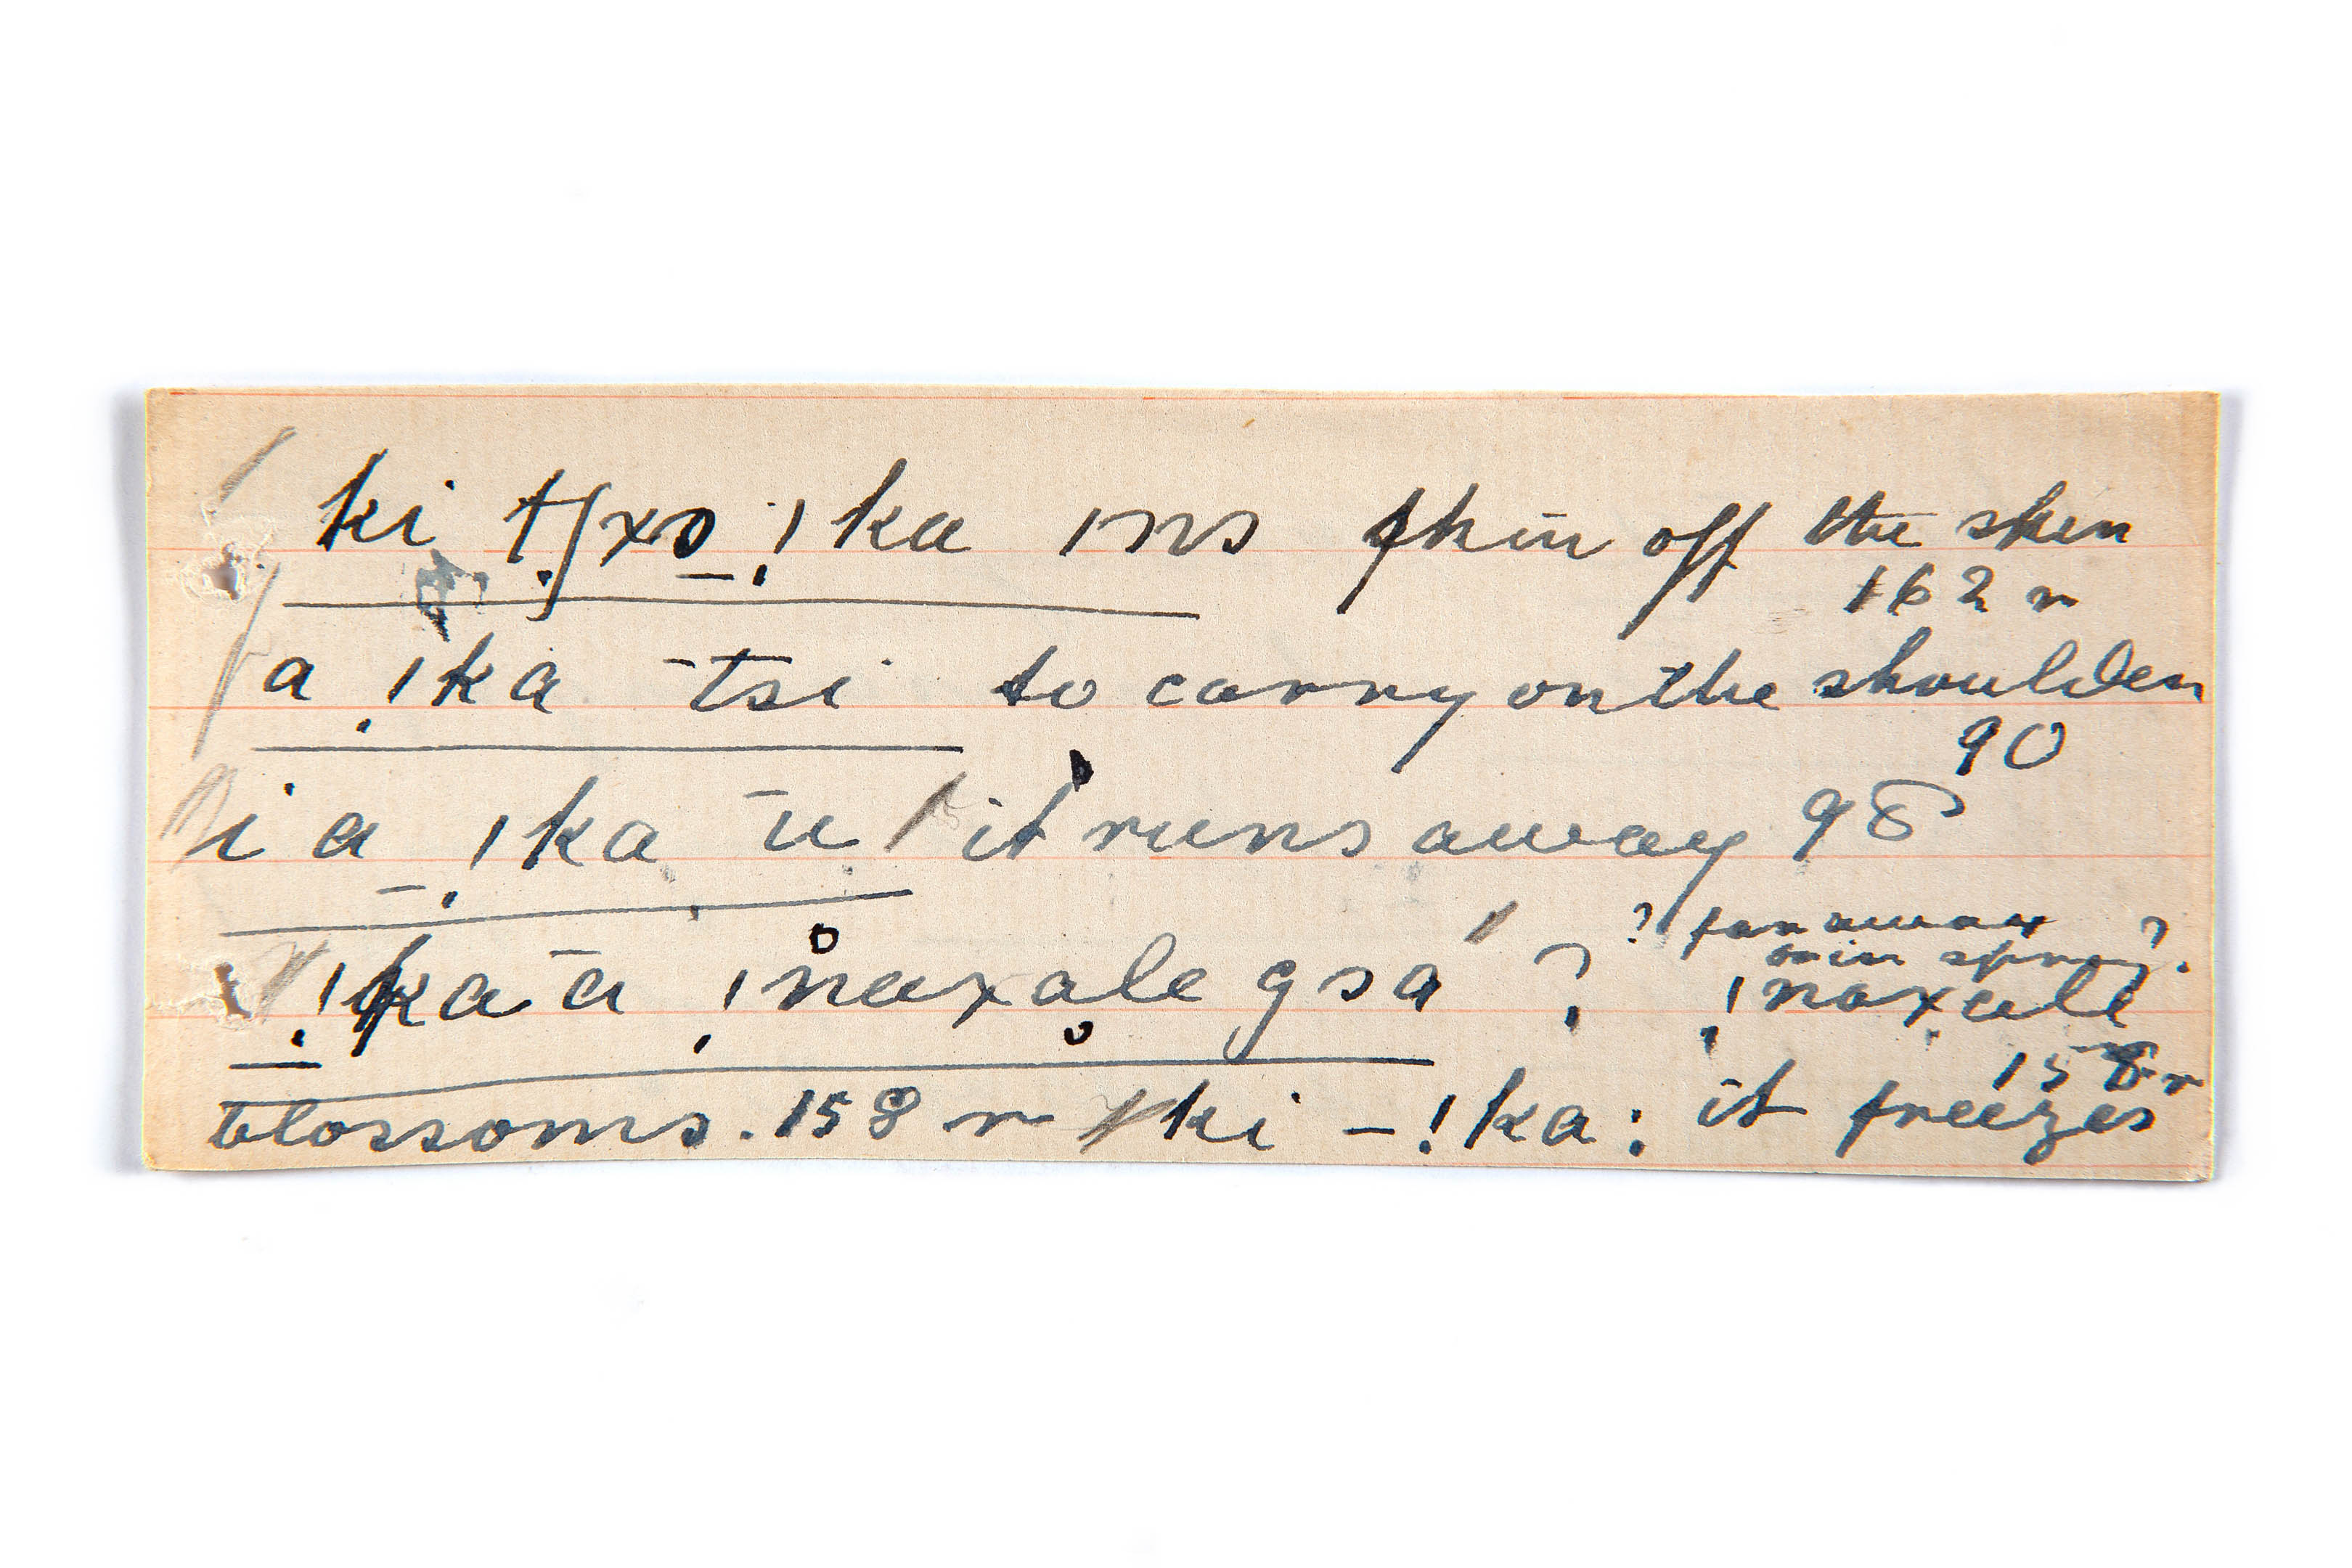 ki tʃxo !ka ıns thin off the skin
162 r
a !ka ̄tsi to carry on the shoulder
90
i a !ka ū it runs away 98
? far away ?
!ka ā !naxale gsa ? !naxale
158 r
blossoms. 158 r ki – !ka : it freezes